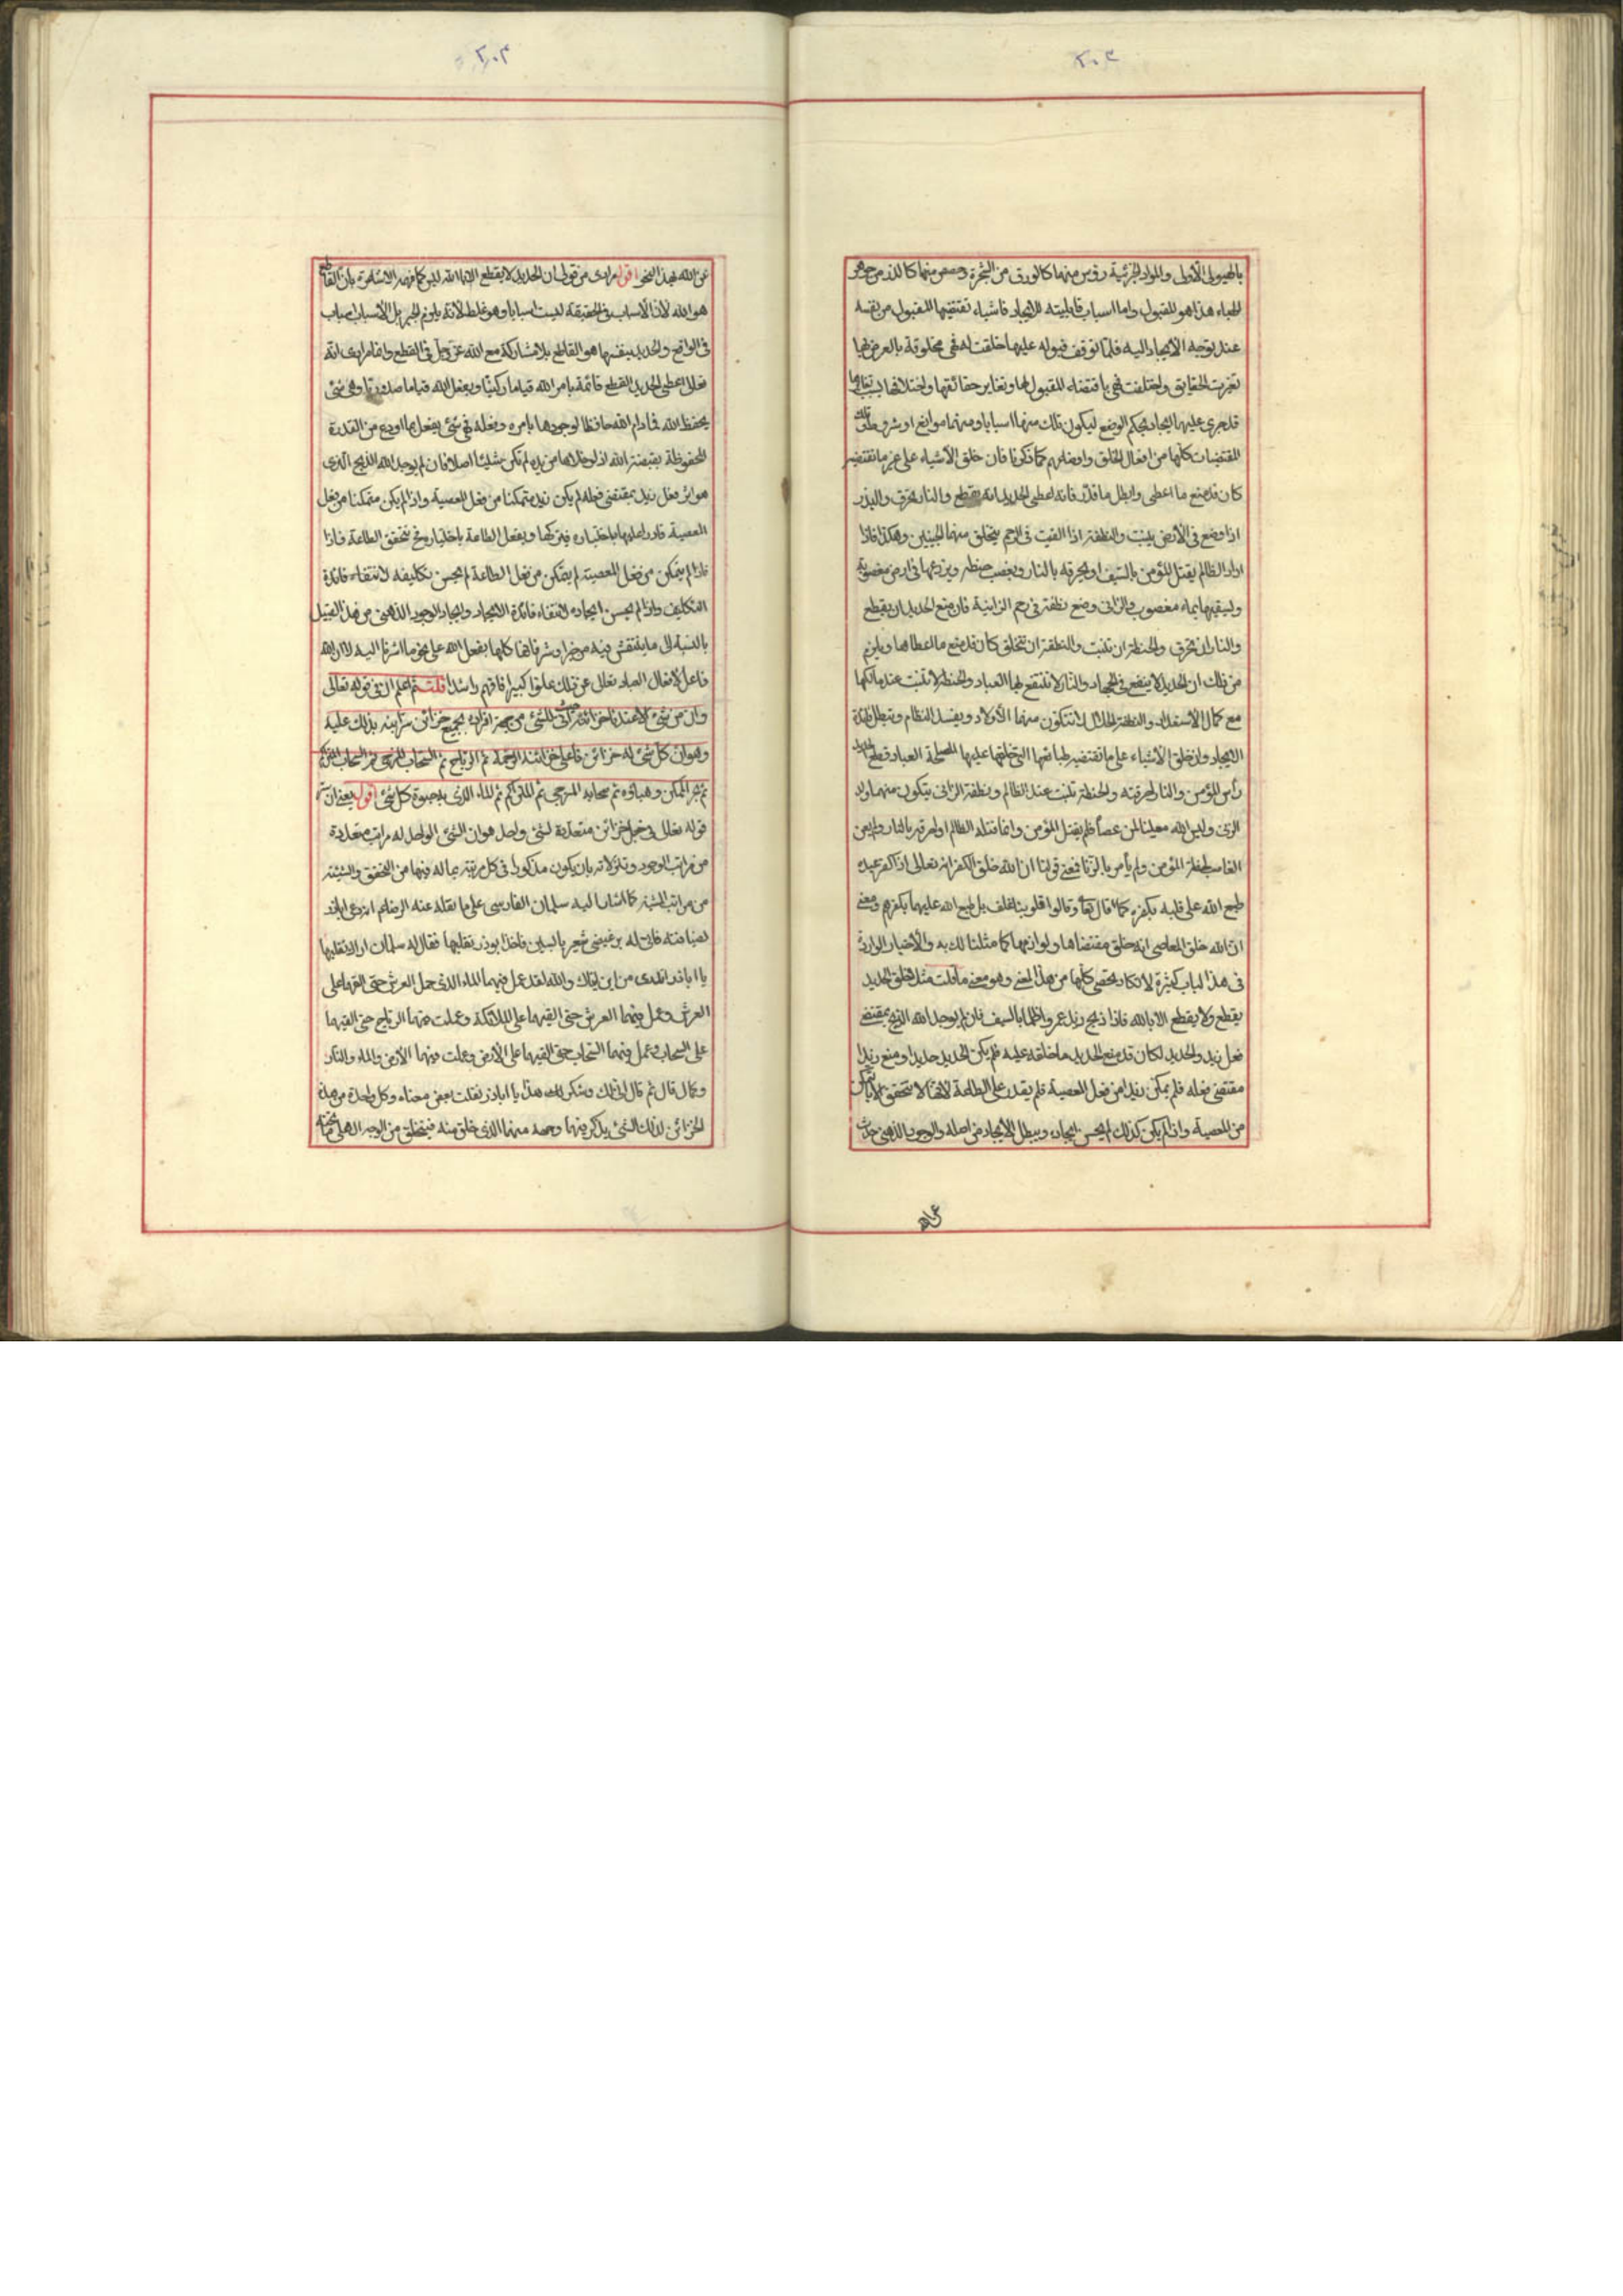 بالهيولى الأولى والمواد الجزئية رؤس منها كالورق من الشجرة وحصص منها كالذر من جوهر
الهباء هذا هو المقبول واما اسباب قابليته للايجاد فاشياء تقتضيها المقبول من نفسه
عند توجه الايجاد اليه فلما توقف قبوله عليها خلقت له فهى مخلوقة بالعرض فيها
تغيرت الحقايق واختلفت فهى باقتضاء المقبول لها وتغاير حقائقها واختلافها بسبب
قد جرى عليها الايجاد بحكم الوضع ليكون تلك منها اسبابا ومنها موانع او شروط
المقتضيات كلها من افعال الخلق واوضاعهم كما ذكرنا فان خلق الأشياء على غير ما تقتضيه
كان قد منع ما اعطى وابطل ما قدر فانه اعطى الحديد انه يقطع والنار تحرق والبذر
اذا وضع فى الأرض ينبت والنطفة اذا القيت فى الرحم يتخلق منها الجنين وهكذا فاذا
اراد الظالم يقتل المؤمن بالسيف او يحرقه بالنار ويغصب حنطة ويزرعها فى ارض مغصوبة
ويسقيها بماء مغصوب والزانى وضع نطفة فى رحم الزانية فان منع الحديد ان يقطع
والنار ان تحرق والحنطة ان تنبت والنطفة ان تتخلق كان قد منع ما اعطاها ويلزم
من ذلك ان الحديد لا ينفع فى الجهاد والنار لا تنتفع بها العباد والحنطة لا تنبت عند مالكها
مع كمال الاستعداد والنطفة الحلال لا تتكون منها الأولاد ويفسد النظام وتبطل فائدة
الايجاد وان خلق الأشياء على ما تقتضيه طبائعها التى خلقها عليها لمصلحة العباد قطع الحديد
رأس المؤمن والنار احرقته والحنطة تنبت عند الظالم ونطفة الزانى يتكون منها ولد
الزنى وليس الله معينا لمن عصاه فلم يقتل المؤمن وانما قتله الظالم او احرقه بالنار ولم يعن
الغاصب لحنطة المؤمن ولم يأمر بالزنا فمعنى قولنا ان الله خلق الكفر انه تعالى اذا كفر عبده
طبع الله على قلبه بكفره كما قال تعالى وقالوا قلوبنا غلف بل طبع الله عليها بكفرهم ومعنى
ان الله خلق المعاصى انه خلق مقتضاها ولوازمها كما مثلنا لك به والأخبار الواردة
فى هذا الباب كثيرة لا تكاد تحصى كلها من هذا المعنى وهو معنى ما قلت مثل خلق الحديد
يقطع ولا يقطع الا بالله فاذا ذبح زيد عمروا ظلما بالسيف فان لم يوجد الله الذبح بمقتضى
فعل زيد والحديد لكان قد منع الحديد ما خلقه عليه فلم يكن الحديد حديدا ومنع زيدا
مقتضى فعله فلم يمكن زيدا من فعل المعصية فلم يقدر على الطاعة لانها لا تتحقق الا بالتمكن
من المعصية واذا لم يكن كذلك لم يحسن ايجاده ويبطل الايجاد من اصله والوجود الذهنى
عن الله بهذا النحو اقول مرادى من قولى ان الحديد لا يقطع الا بالله ليس كما فهمه الاشاعرة بان القاطع
هو الله لأن الأسباب فى الحقيقة ليست اسبابا وهو غلط لأنه يلزم الجبر بل الأسباب اسباب
فى الواقع والحديد بنفسها هو القاطع بلا مشاركة مع الله عز وجل فى القطع وانما مرادى انه
تعالى اعطى الحديد القطع قائمة بامر الله قياما ركنيا وبفعل الله قياما صدوريا وهى شئ
يحفظ الله فما دام الله حافظا لوجودها بامره وبفعله فهى شئ يفعل بما اودع من القدرة
المحفوظة بقبضة الله اذ لو خلاها من يده لم تكن شيئا اصلا فان لم يوجد الله الذبح الذى
هو اثر فعل زيد بمقتضى فعله لم يكن زيد متمكنا من فعل المعصية واذا لم يكن متمكنا من فعل
المعصية قادرا عليها باختياره فيتركها ويفعل الطاعة باختياره لم تتحقق الطاعة فاذا
فاذا لم يتمكن من فعل المعصية لم يتمكن من فعل الطاعة لم يحسن تكليفه لانتفاء فائدة
التكليف واذا لم يحسن ايجاده لانتفاء فائدة الايجاد وايجاد الوجود الذهنى من هذا القبيل
بالنسبة الى ما ينتقش فيه من خير او شر فانها كلها بفعل الله على نحو ما اشرنا اليه لا ان الله
فاعل لافعال العباد تعالى عن ذلك علوا كبيرا فافهم راشدا قلت ثم اعلم ان فى قوله تعالى
وان من شئ الا عندنا خزائنه للشئ من جهة افراد وجميع خزائن يذلك عليه
وهو ان كل شئ له خزائن فاعلى خزائنه الرحمة ثم الرياح ثم السحاب المزجى ثم السحاب المتراكم
ثم بحر الممكن وهباؤه ثم سحابه المزجى ثم المتراكم ثم الماء الذى به حيوة كل شئ اقول يعنى ان
قوله تعالى فى جعل خزائن متعددة لشئ واحد هو ان الشئ الواحد له مراتب متعددة
من مراتب الوجود وتنزلاته بان يكون مذكورا فى كل رتبة بما له فيها من التحقق والشيئية
من مراتب كما اشار اليه سلمان الفارسى على ما نقله عنه الرضا ع انه دعى اباذر
لضيافته فاتى له برغيفى شعير يابسين فاخذ ابوذر يقلبها فقال له سلمان اراك تقلبها
يا اباذر اتدرى من اين لك والله لقد عمل فيهما الماء الذى حمل العرش حتى القيهما على
العرش وعمل فيهما العرش حتى القيهما على الملائكة وعملت فيهما الرياح حتى القيهما
على السحاب وعمل فيهما السحاب حتى القيهما على الأرض وعملت فيهما الأرض والماء والنار
وكما قال ثم قال انى لك وشكر لله هذا يا اباذر نقلت بعض معناه وكل واحدة من هذه
الخزائن لذلك الشئ يذكر فيها وحصة منها الذى خلق منه فيتخلق من الوجه الاعلى